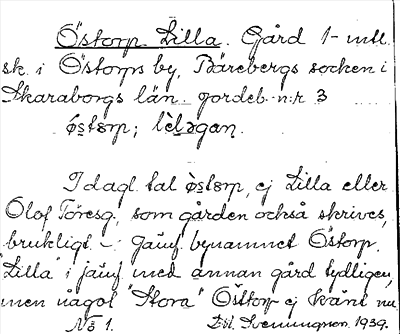 Östorp Lilla. Gård 1 - mtl
sk. i Östorps by, Bärebergs socken i
Skaraborgs län. jordeb. n:r 3
östɷrp; lèlagan.
I dagl. tal östɷrp, ej Lilla eller
Olof Töresg., som gården också skrives,
brukligt -. Jämf. bynamnet Östorp.
"Lilla" i jämf. med annan gård tydligen,
men något "Stora" Östtorp ej känt nu.
No 1. Svenungson. 1939.